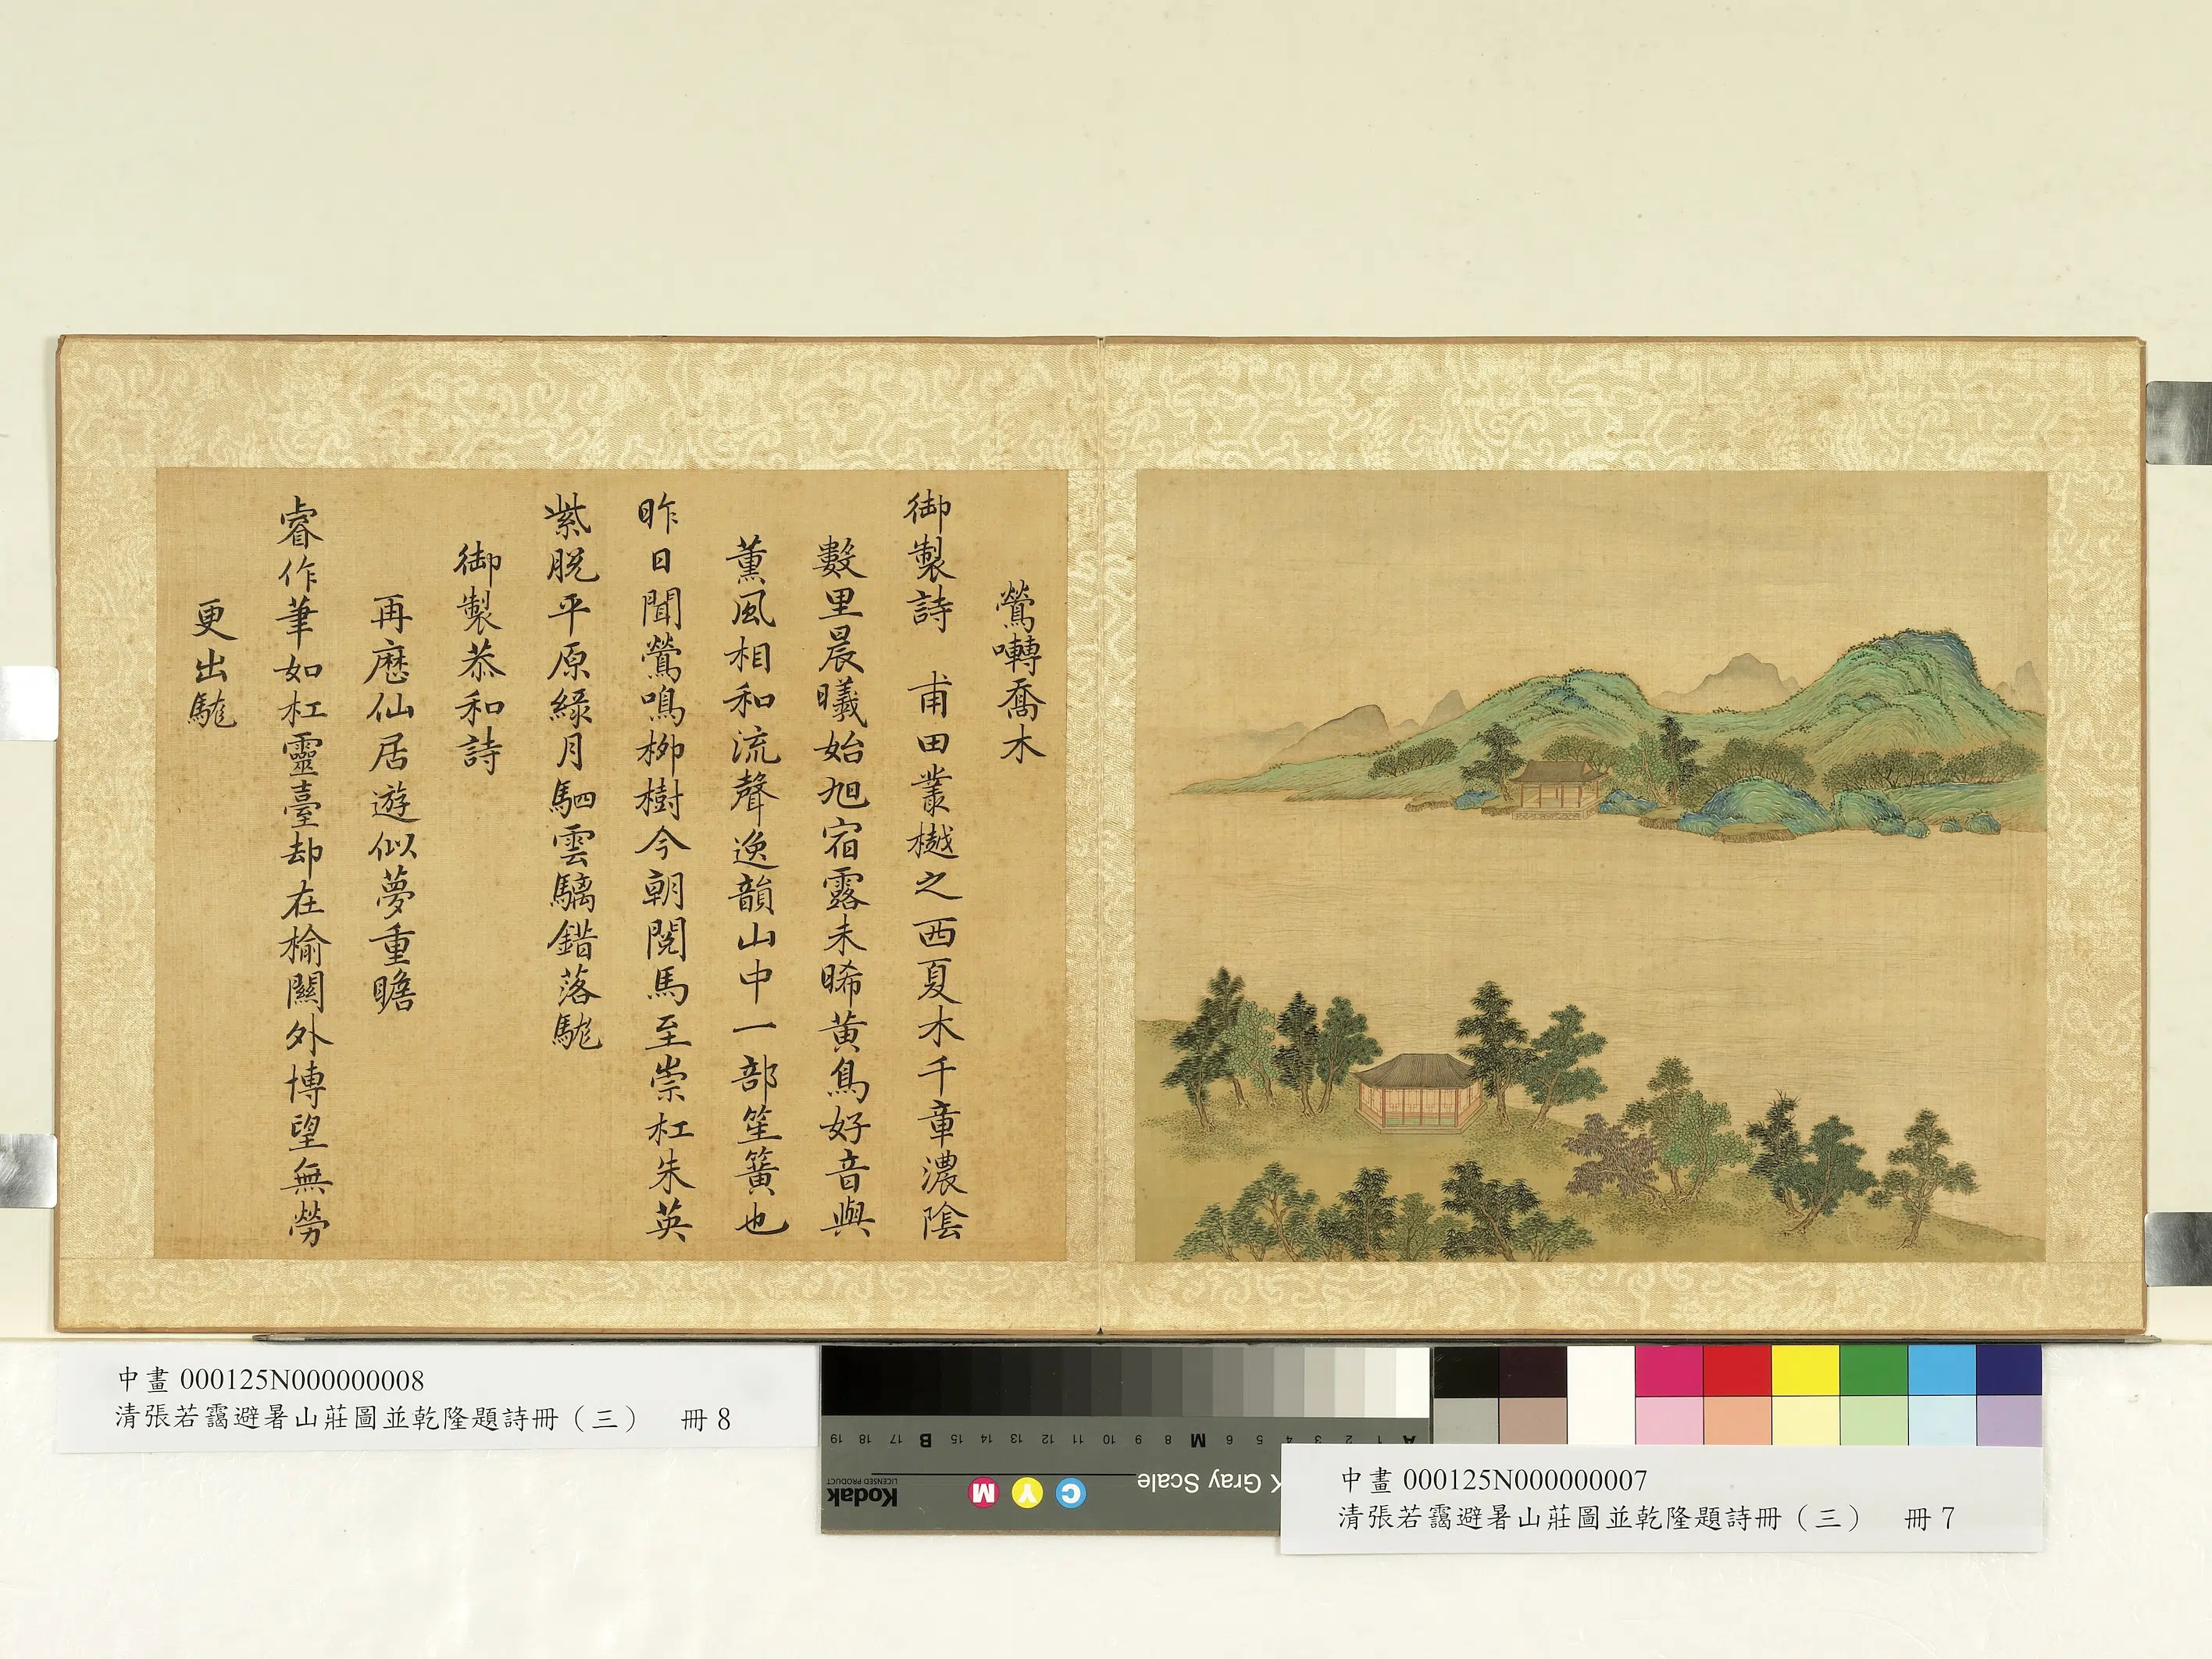 鶯囀喬木
御製詩　甫田叢樾之西夏木千章濃陰
數里晨曦始旭宿露未晞黃鳥好音與
薰風相和流聲逸韻山中一部笙簧也
昨日聞鶯鳴栁樹今朝閱馬至崇杠朱英
紫脫平原綠月駟雲驕錯落駹
御製恭和詩
再歷仙居遊似夢重瞻
睿作筆如杠靈臺却在榆關外博望無勞
更出駹
中畫 000125N000000008
清張若靄避暑山莊圖並乾隆題詩冊（三）　冊 8
19 18 17 B 16 15 14 13 12 11 10 9 8 M 7 6 5 4 3 2 1 A
Kodak
LICENSED PRODUCT
M Y C
Gray Scale
中畫 000125N000000007
清張若靄避暑山莊圖並乾隆題詩冊（三）　冊 7